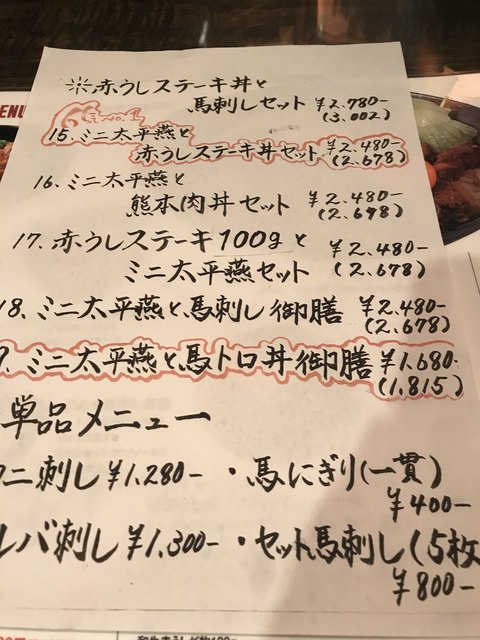 ※赤うしステーキ丼と
馬刺しセット ¥2.780-
(3.002)
人気No.1
15. ミニ太平燕と ¥2.480-
赤うしステーキ丼セット (2.678)
16. ミニ太平燕と ¥2.480-
熊本肉丼セット (2.678)
17. 赤うしステーキ100gと ¥2.480-
ミニ太平燕セット (2.678)
18. ミニ太平燕と馬刺し御膳 ¥2.480-
(2.678)
9. ミニ太平燕と馬トロ丼御膳 ¥1.680-
(1.815)
単品メニュー
ニ刺し ¥1.280- ・馬にぎり(一貫)
¥400-
レバ刺し ¥1.300- ・セット馬刺し(5枚
¥800-
ENU